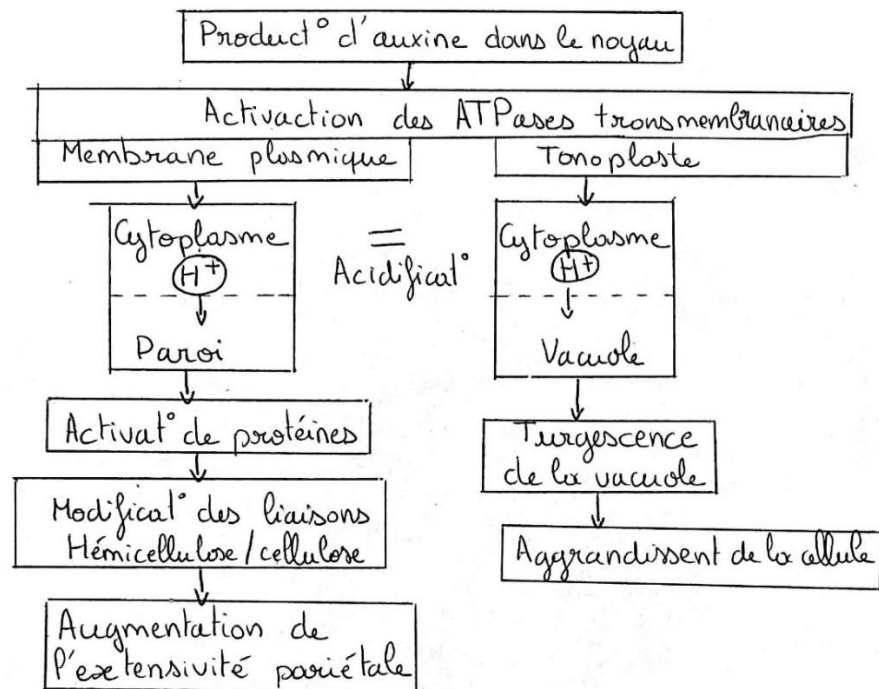 Product° d'auxine dans le noyau
Activaction des ATPases transmembranaires
Membrane plasmique
Tonoplaste
Cytoplasme
H+
Paroi
=
Acidificat°
Cytoplasme
H+
Vacuole
Activat° de protéines
Modificat° des liaisons
Hémicellulose/cellulose
Augmentation de
l'extensivité pariétale
Turgescence
de la vacuole
Aggrandissent de la cellule